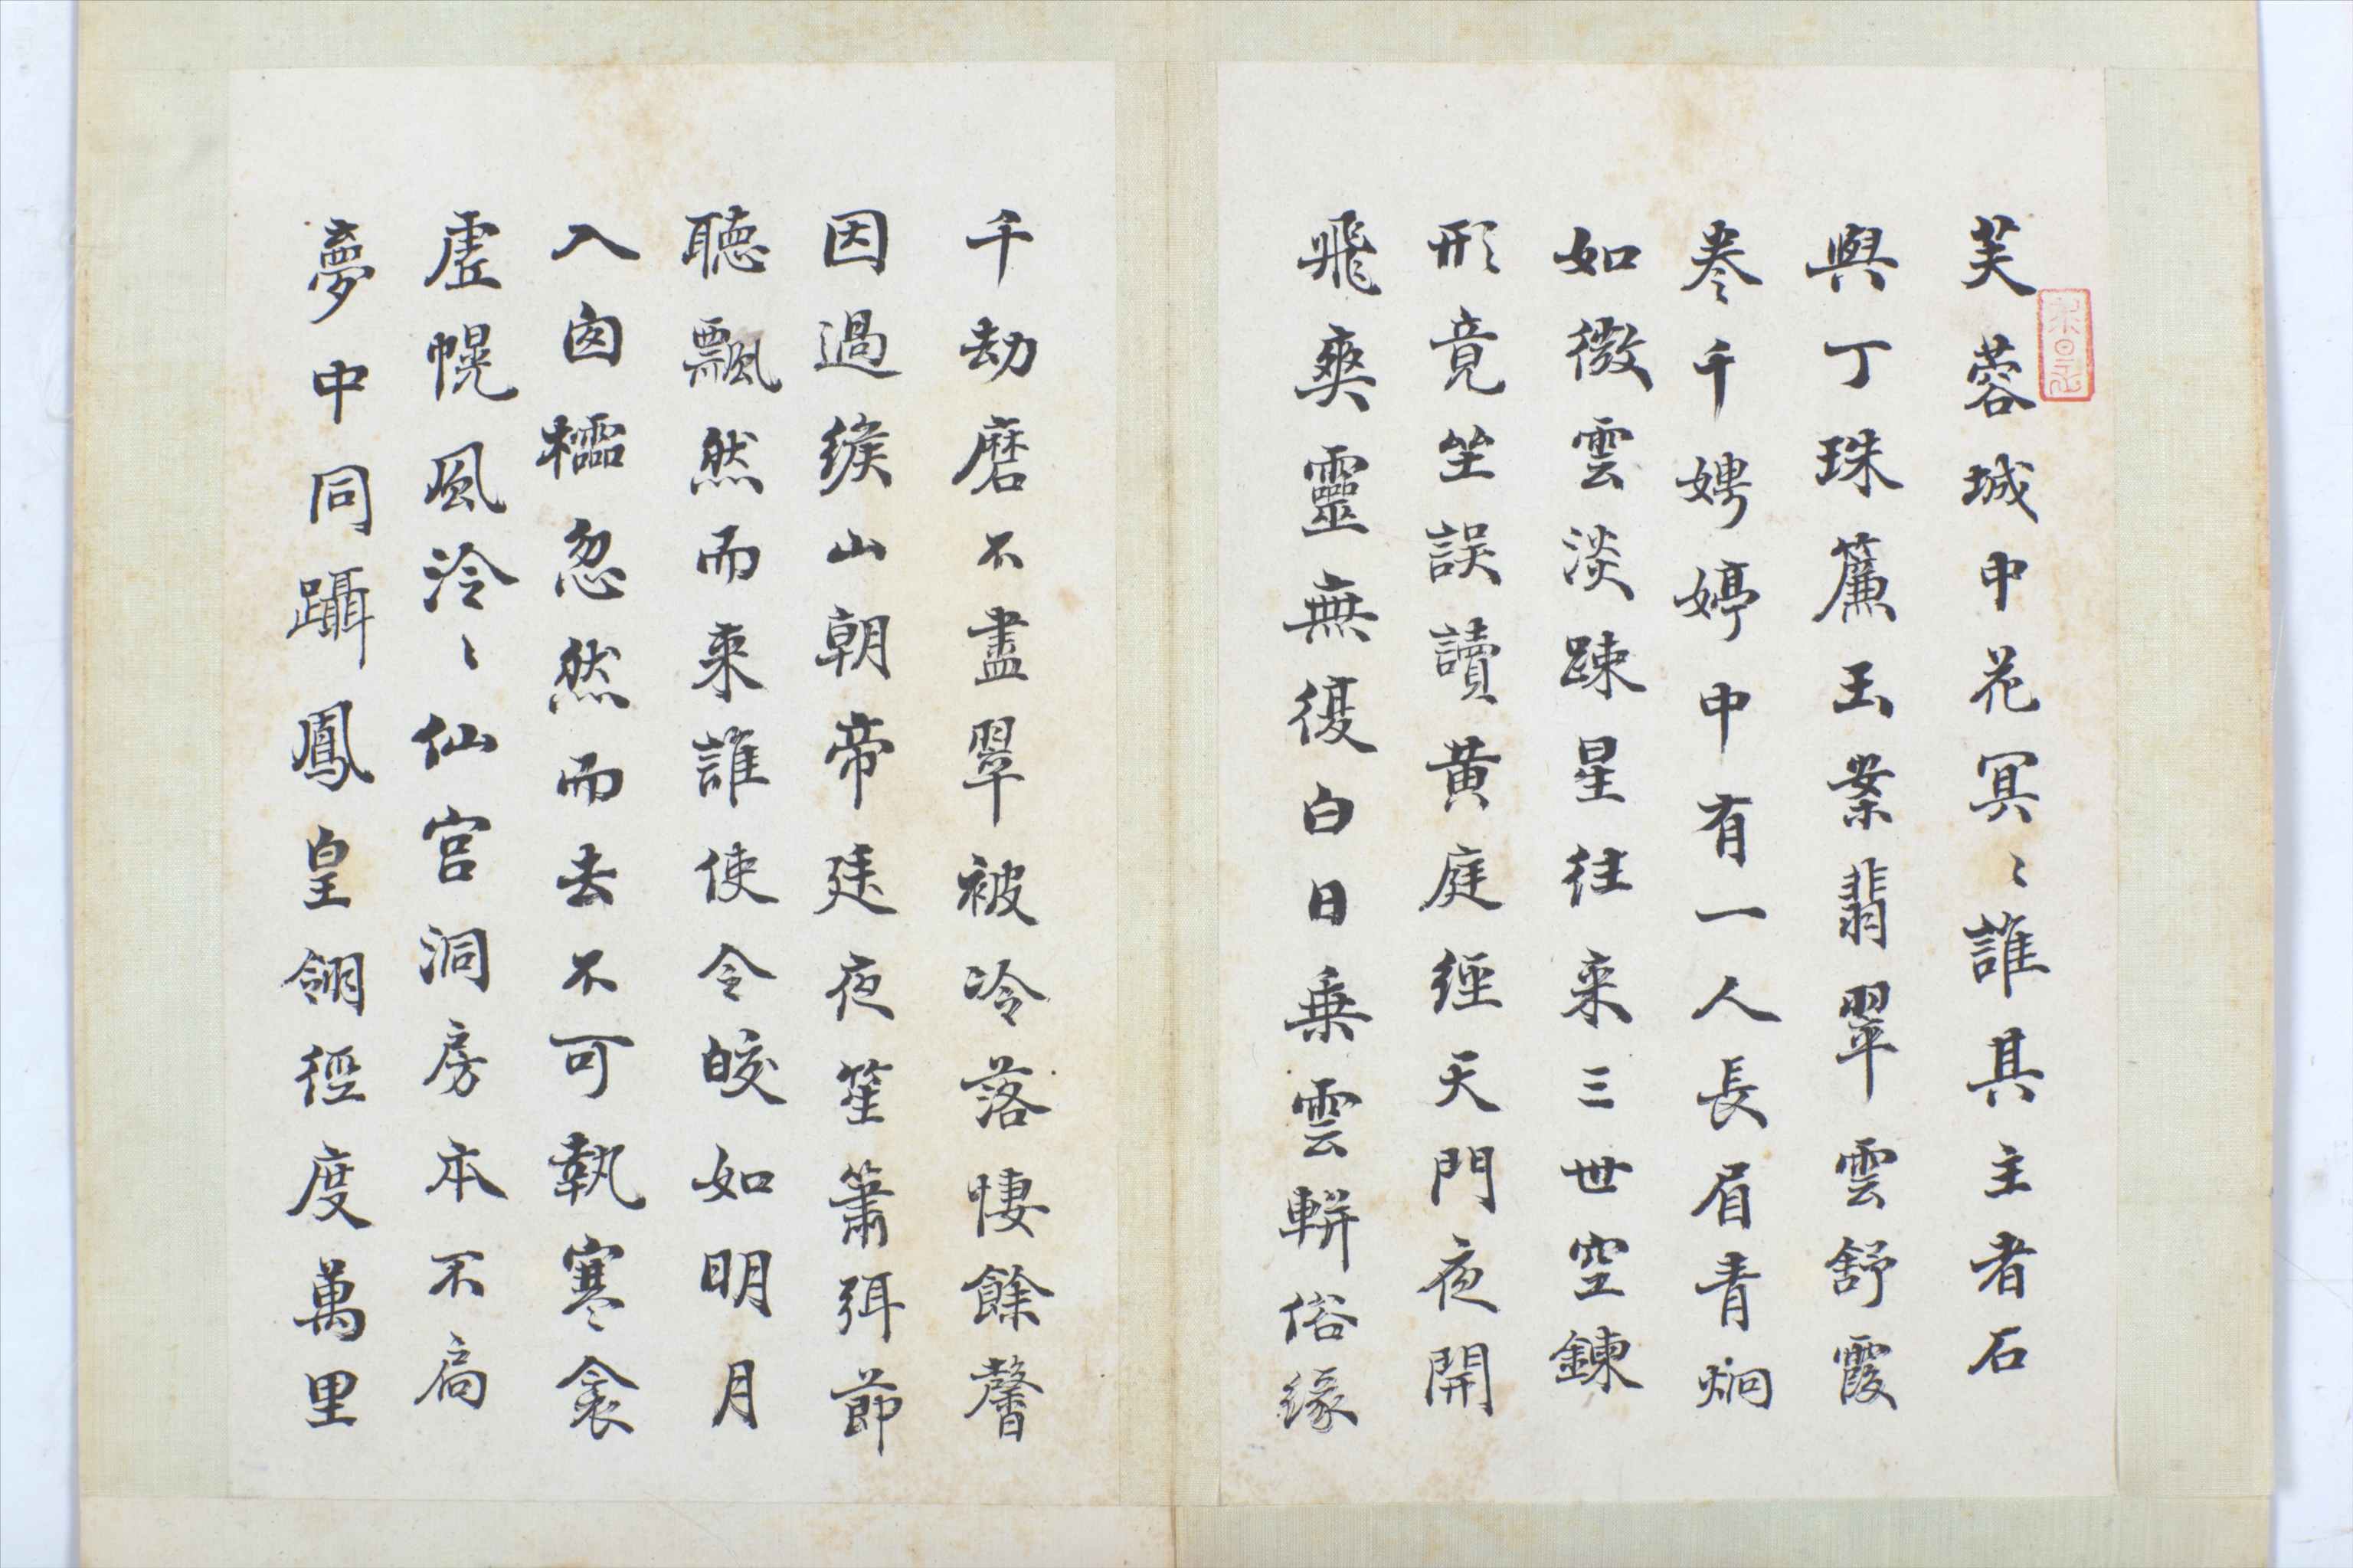 芙蓉城中花冥〻誰其主者石
與丁珠簾玉案翡翠雲舒霞
卷千娉婷中有一人長眉青炯
如微雲淡疎星往来三世空鍊
形竟坐誤讀黄庭經天門夜開
飛爽靈無復白日乗雲輧俗緣
千劫磨不盡翠被冷落悽餘馨
因過緱山朝帝廷夜笙簫弭節
聽飄然而来誰使令皎如明月
入囱櫺忽然而去不可執寒衾
虛幌風泠〻仙宫洞房本不扃
夢中同躡鳳皇翎徑度萬里